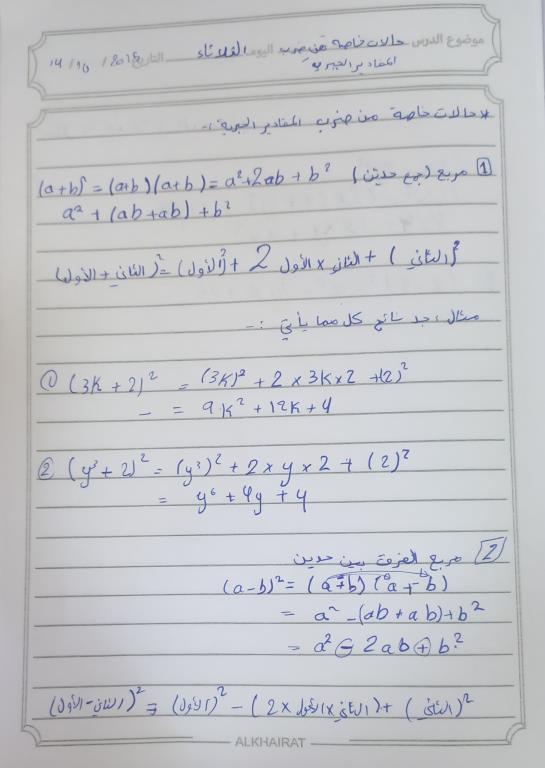 موضوع الدرس حالات خاصة من ضرب اليوم الثلاثاء التاريخ 14/10/2018
المقادير الجبرية
* حالات خاصة من ضرب المقادير الجبرية :-
1 مربع (جمع حدين) (a+b)² = (a+b)(a+b) = a²+2ab+b²
a² + (ab+ab) + b²
(الثاني + الأول)² = (الأول)² + 2 الثاني × الأول + (الثاني)²
مثال : جد ناتج كل مما يأتي :-
① (3k + 2)² = (3k)² + 2 × 3k × 2 + (2)²
= 9k² + 12k + 4
② (y³ + 2)² = (y³)² + 2 × y × 2 + (2)²
= y⁶ + 4y + 4
2 مربع الفرق بين حدين
(a-b)² = (a-b)(a-b)
= a² - (ab + ab) + b²
= a² - 2ab + b²
(الثاني - الأول)² = (الأول)² - (2 × الأول × الثاني) + (الثاني)²
ALKHAIRAT